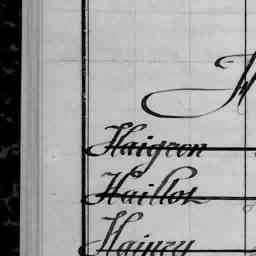 H
Haigron
Haillot
Hainry